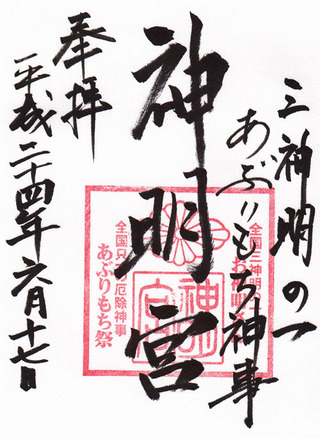 三神明の一
あぶりもち神事
神明宮
奉拝
平成二十四年六月十七日
全国三神明の
お神明さん
神明
宮
全国只一 厄除神事
あぶりもち祭